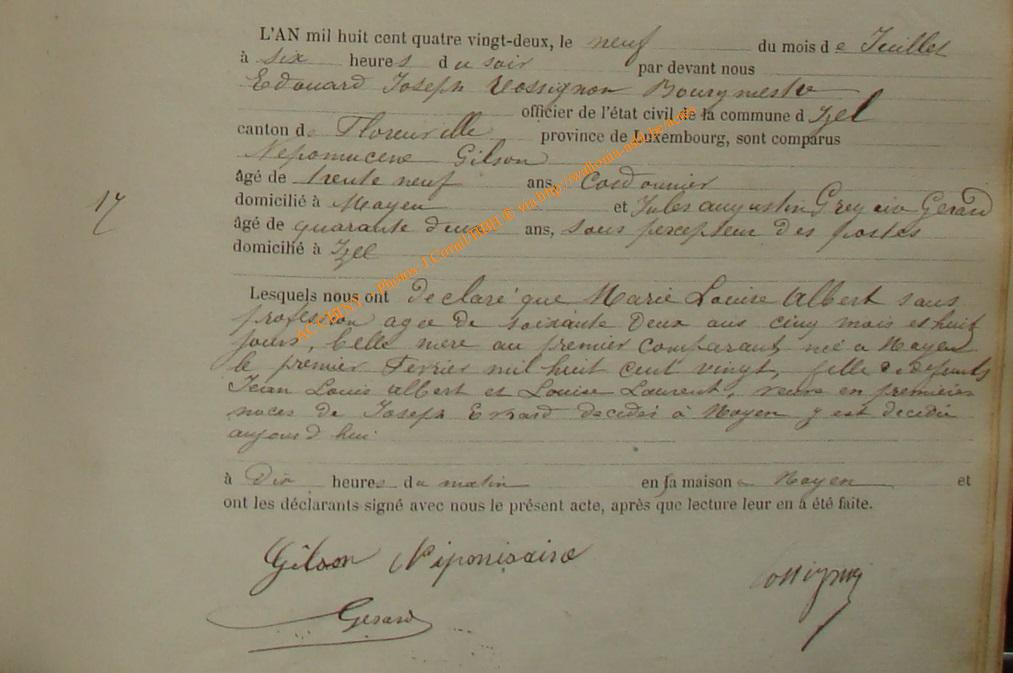 L'AN mil huit cent quatre vingt-deux, le neuf du mois de Juillet
à six heures du soir par devant nous
Edouard Joseph Rossignon Bourgmestre
officier de l'état civil de la commune d Izel
canton de Florenville province de Luxembourg, sont comparus
Nepomucene Gilson
âgé de trente neuf ans, Cordonnier
17
domicilié à Moyen et Jules augustin Gerard
âgé de quarante deux ans, sous percepteur des postes
domicilié à Izel
Lesquels nous ont declaré que Marie Louise Albert sans
profession agee de soixante deux ans cinq mois et huit
jours, belle mere au premier comparant, né a Moyen
le premier Fevrier mil huit cent vingt, fille de defunts
Jean Louis Albert et Louise Laurent, veuve en premieres
noces de Joseph Evrard decedés à Moyen y est decedée
aujourd hui
à Dix heures du matin en sa maison a Moyen et
ont les déclarants signé avec nous le présent acte, après que lecture leur en a été faite.
Gilson
Gerard